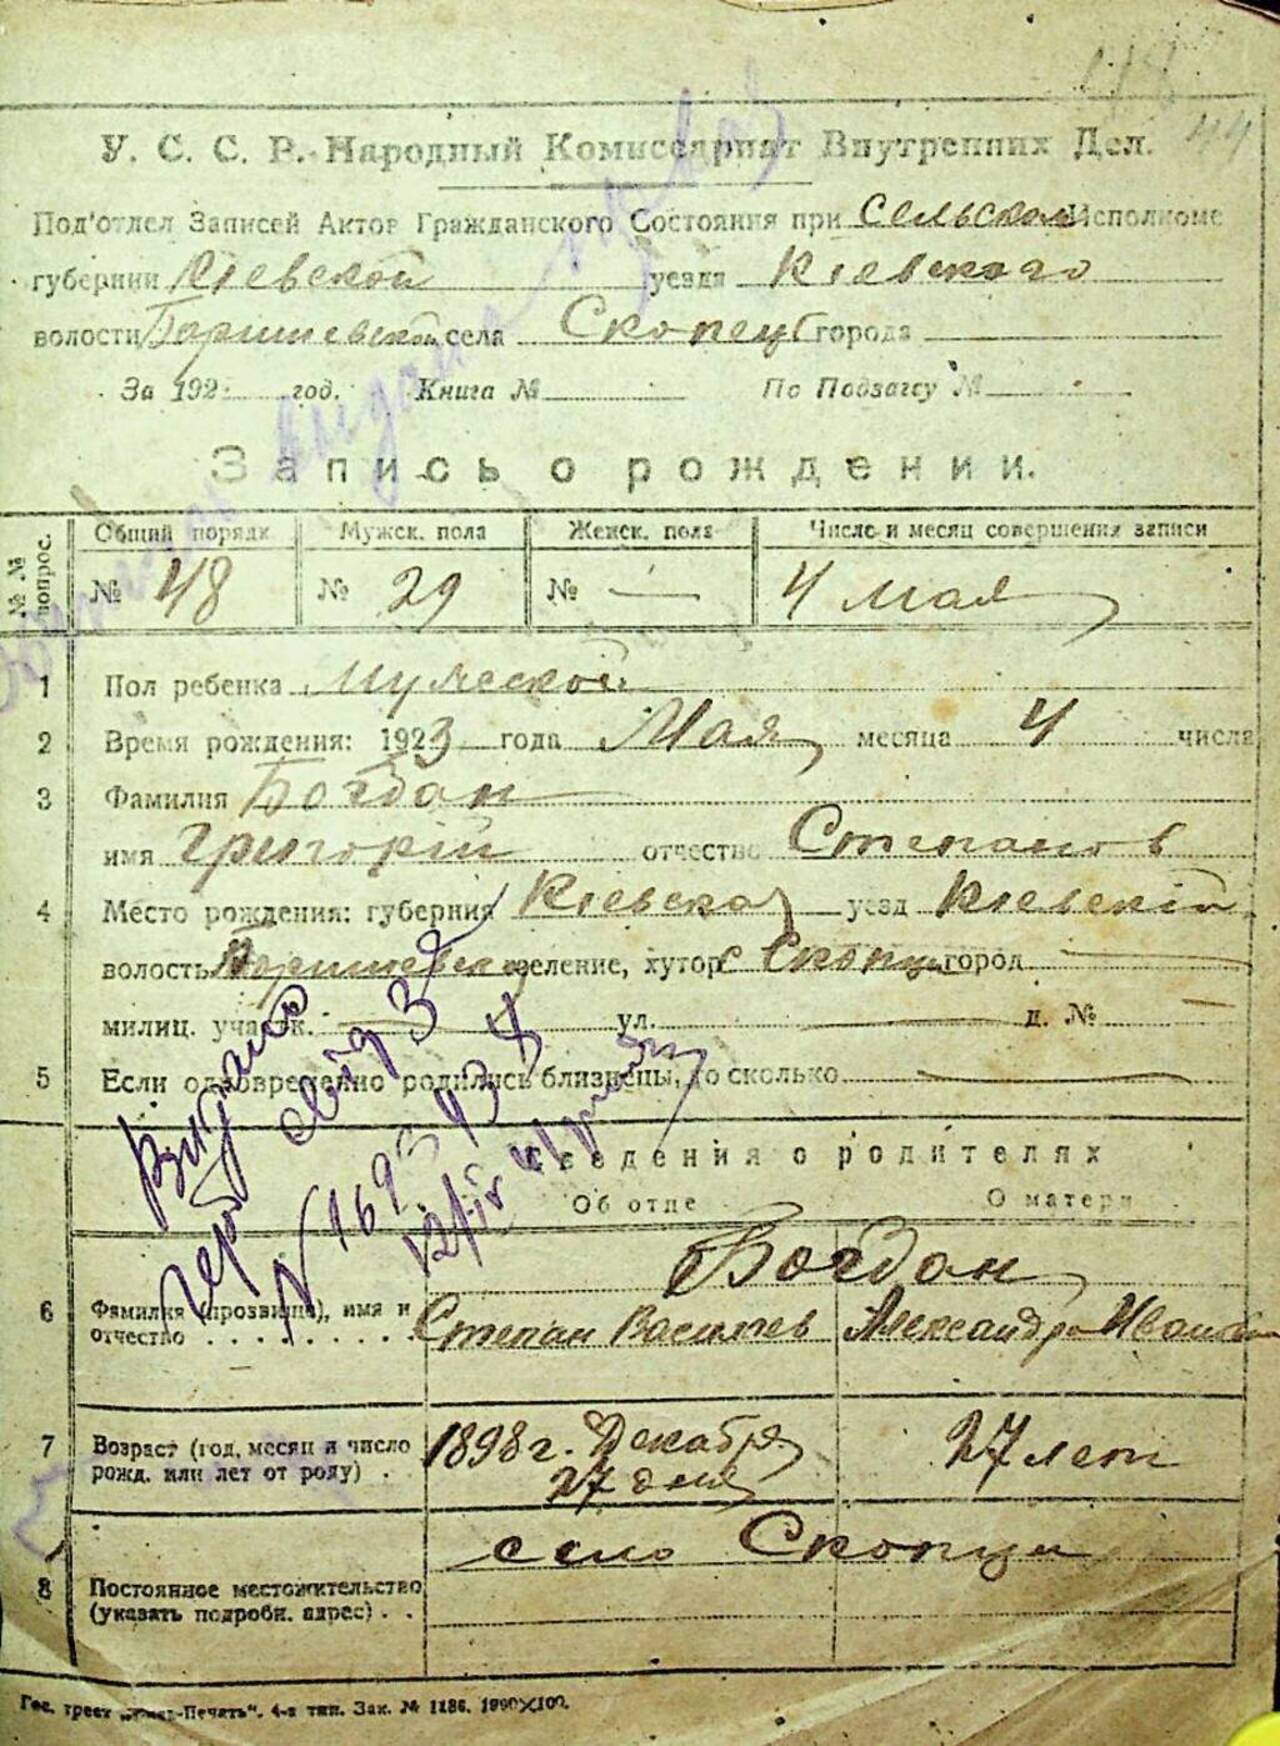 44
У. С. С. Р. Народный Комиссариат Внутренних Дел.
Под'отдел Записей Актов Гражданского Состояния при Сельском Исполкоме
губернии Кіевской уезда Кіевского
волости Баришевской села Скопец города
За 192 год. Книга № По Подзагсу №
Запись о рождении.
№№ вопрос. Общий порядк Мужск. пола Женск. пола Число и месяц совершения записи
№ 48 № 29 № — 4 мая
1 Пол ребенка Мужеской
2 Время рождения: 1923 года Мая месяца 4 числа
3 Фамилия Богдан
имя Григорій отчество Степанов
4 Место рождения: губерния Кіевская уезд Кіевскій
волость Баришевск селение, хутор с Скопцы город —
милиц. участк. — ул. — д. № —
5 Если одновременно родились близнецы, то сколько —
видано
свід
N
Сведения о родителях
Об отце О матери
Богдан
6 Фамилия (прозвище), имя и отчество . . . . . . . . Степан Васильев Александра Иванов
7 Возраст (год, месяц и число рожд. или лет от роду) . 1898 г. Декабря 27 дня 27 лет
село Скопци
8 Постоянное местожительство (указать подробн. адрес) . .
Гос. трест -Печать". 4-я тип. Зак. № 1186. 1990×100.